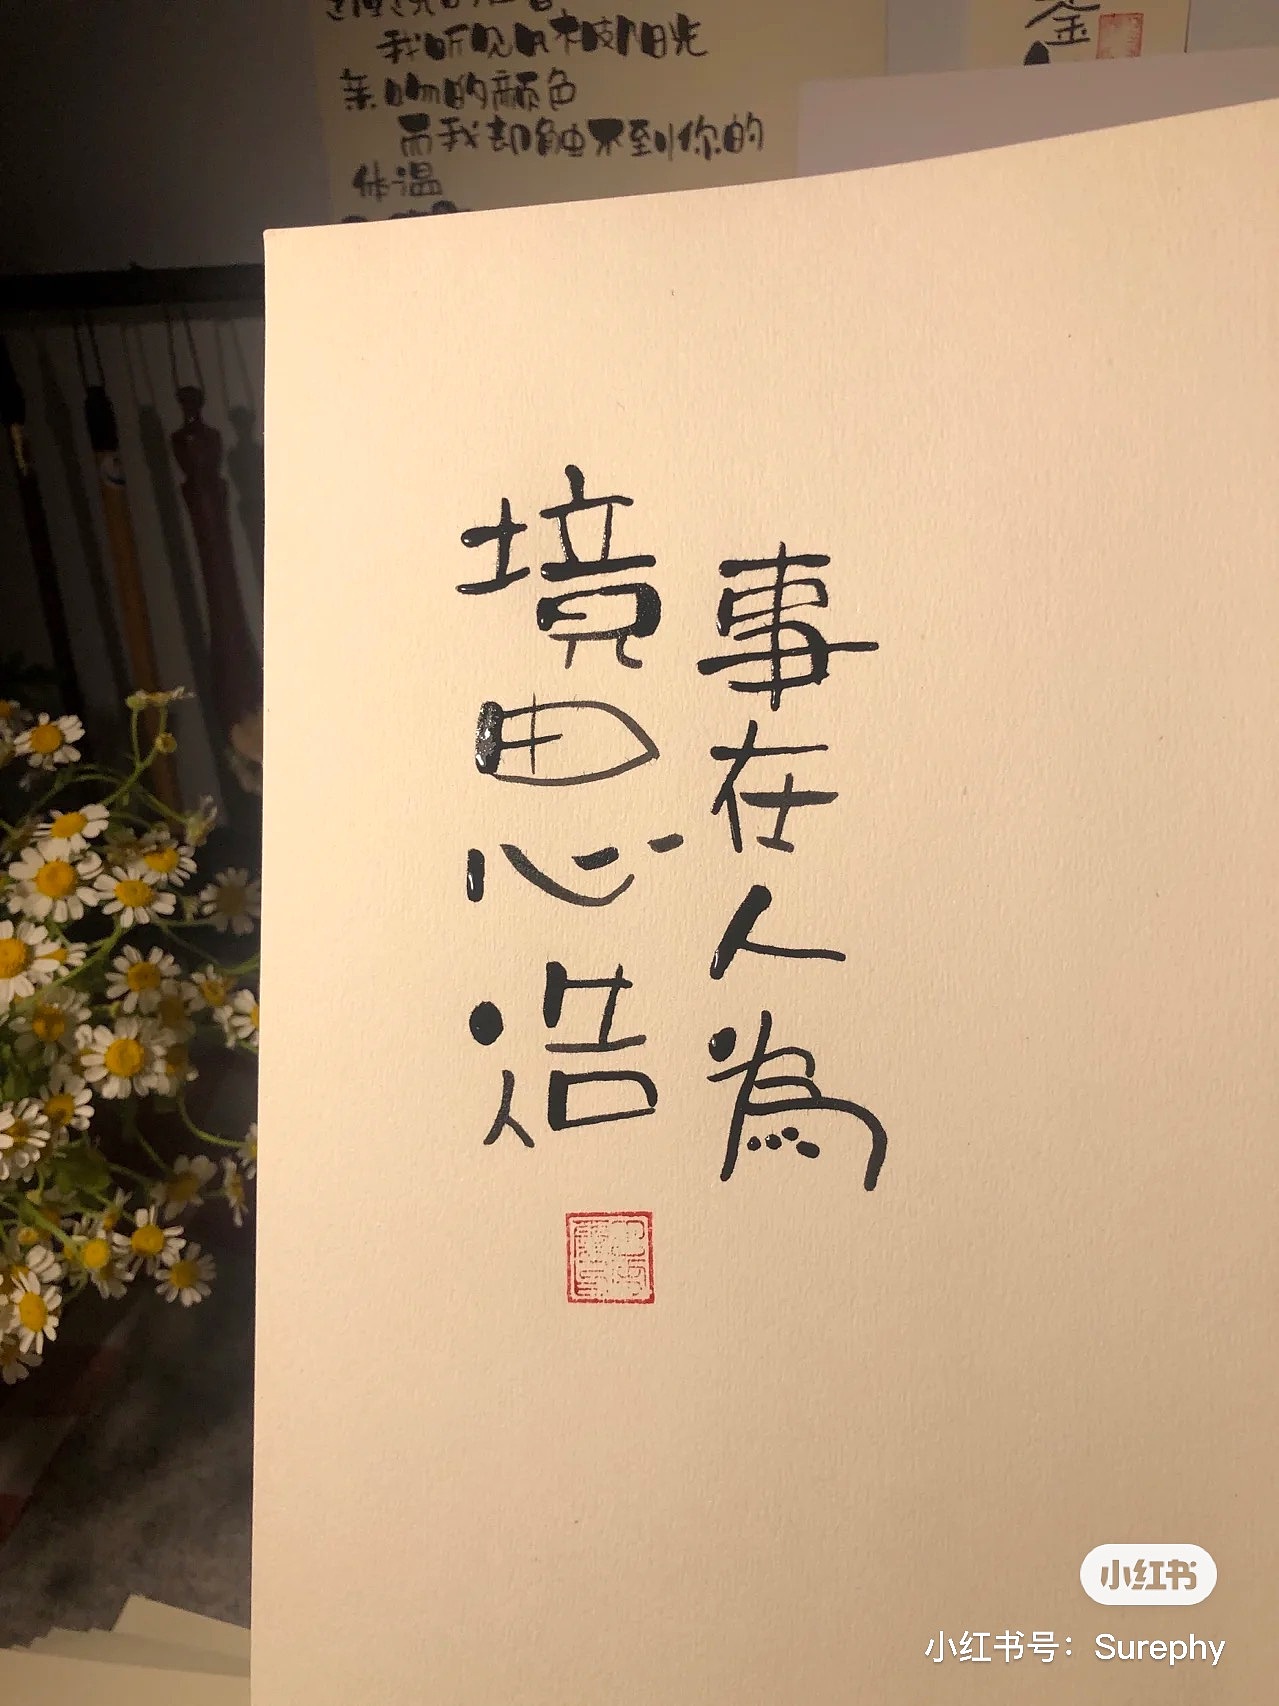 我听见风被阳光
亲吻的颜色
而我却触不到你的
体温
事在人為
境由心造
小红书
小红书号：Surephy